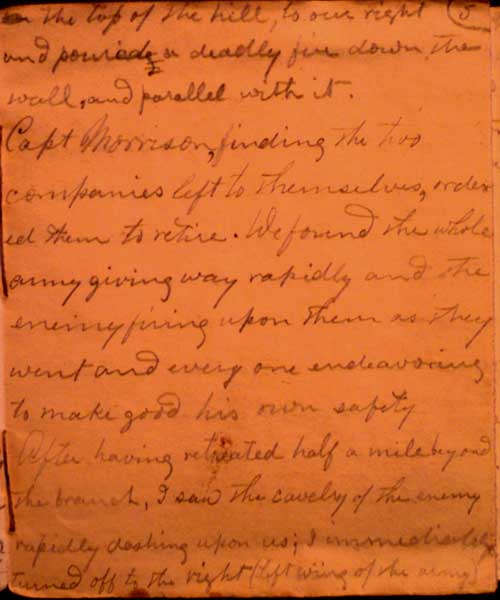 on the top of the hill, to our right 5
and poured a deadly fire down the
wall, and parallel with it.
Capt Morrison, finding the two
companies left to themselves, order
ed them to retire. We found the whole
army giving way rapidly and the
enemy firing upon them as they
went and every one endeavoring
to make good his own safety
After having retreated half a mile beyond
the branch, I saw the cavalry of the enemy
rapidly dashing upon us; I immediately
turned off to the right (left wing of the army)